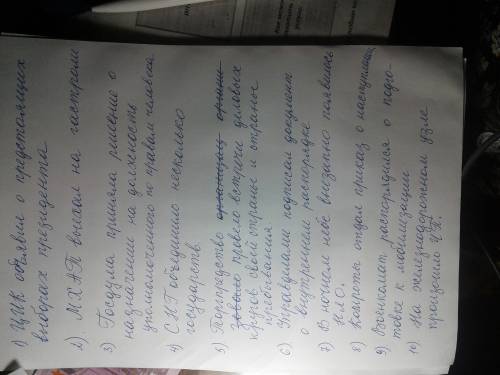 1) ЦИК объявил о предстоящих
выборах президента
2) МХАТ выехал на гастроли
3) Госдума приняла решение о
назначении на должность
уполномоченного по правам человека
4) СНГ объединило несколько
государств.
5) Торгпредство организац органи-
зовало провело встречи деловых
кругов своей страны и страны
пребывания
6) Управделами подписал документ
о внутреннем распорядке
7) В ночном небе внезапно появилось
НЛО.
8) Комроты отдал приказ о наступлении
9) Военкомат распорядился о подго-
товке к мобилизации
10) На железнодорожном узле
произошло ЧП.